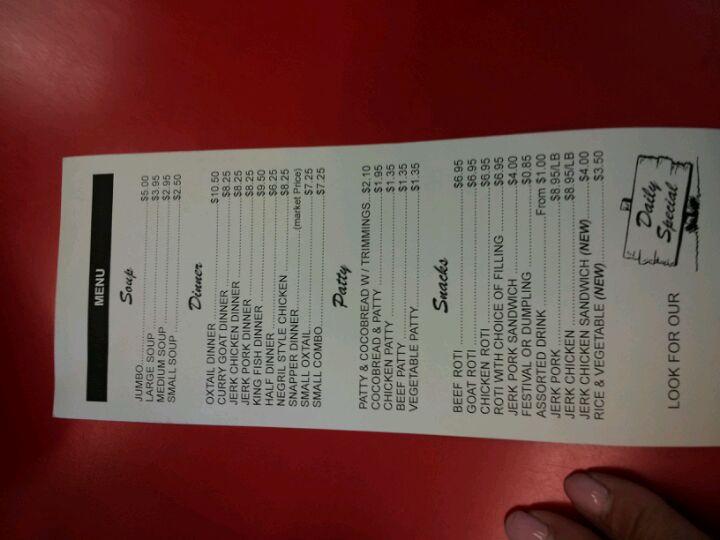 MENU
Soup
JUMBO $5.00
LARGE SOUP $3.95
MEDIUM SOUP $2.95
SMALL SOUP $2.50
Dinner
OXTAIL DINNER $10.50
CURRY GOAT DINNER $8.25
JERK CHICKEN DINNER $8.25
JERK PORK DINNER $8.25
KING FISH DINNER $9.50
HALF DINNER $6.25
NEGRIL STYLE CHICKEN $8.25
SNAPPER DINNER (market Price)
SMALL OXTAIL $7.25
SMALL COMBO $7.25
Patty
PATTY & COCOBREAD W / TRIMMINGS $2.10
COCOBREAD & PATTY $1.95
CHICKEN PATTY $1.35
BEEF PATTY $1.35
VEGETABLE PATTY $1.35
Snacks
BEEF ROTI $6.95
GOAT ROTI $6.95
CHICKEN ROTI $6.95
ROTI WITH CHOICE OF FILLING $6.95
JERK PORK SANDWICH $4.00
FESTIVAL OR DUMPLING $0.85
ASSORTED DRINK From $1.00
JERK PORK $8.95/LB
JERK CHICKEN $8.95/LB
JERK CHICKEN SANDWICH (NEW) $4.00
RICE & VEGETABLE (NEW) $3.50
LOOK FOR OUR
Daily
Special